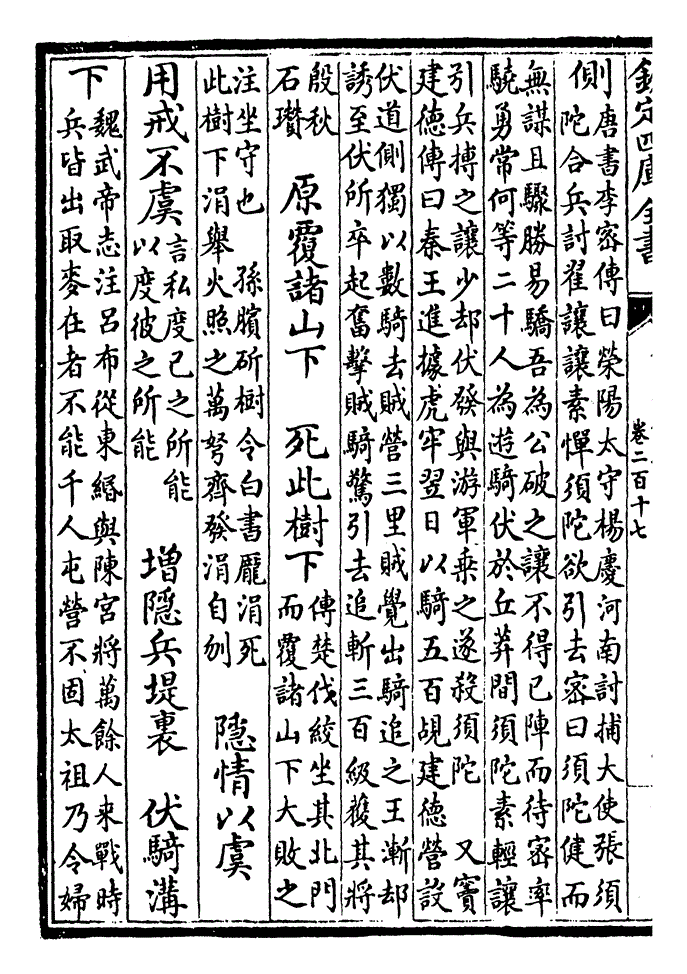 欽定四庫全書
卷二百十七
側
唐書李密傳曰滎陽太守楊慶河南討捕大使張須
陀合兵討翟讓讓素憚須陀欲引去密曰須陀健而
無謀且驟勝易驕吾為公破之讓不得已陣而待密率
驍勇常何等二十人為遊騎伏於丘莽間須陀素輕讓
引兵搏之讓少却伏發與游軍乗之遂殺須陀 又竇
建德傳曰秦王進據虎牢翌日以騎五百覘建德營設
伏道側獨以數騎去賊營三里賊覺出騎追之王漸却
誘至伏所卒起奮擊賊騎驚引去追斬三百級獲其將
殷秋
石瓚
原覆諸山下 死此樹下
傳楚伐絞坐其北門
而覆諸山下大敗之
注坐守也 孫臏斫樹令白書龎涓死
此樹下涓舉火照之萬弩齊發涓自刎
隠情以虞
用戒不虞
言私度已之所能
以度彼之所能
増隠兵堤裏 伏騎溝
下
魏武帝志注呂布從東緡與陳宮將萬餘人来戰時
兵皆出取麥在者不能千人屯營不固太祖乃令婦